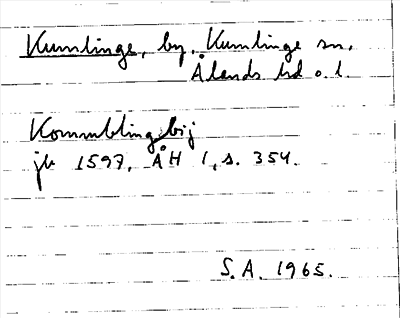 Kumlinge, by, Kumlinge sn,
Ålands hd o. l.
Kommblingebij
jb 1597, ÅH 1, s. 354.
S.A. 1965.